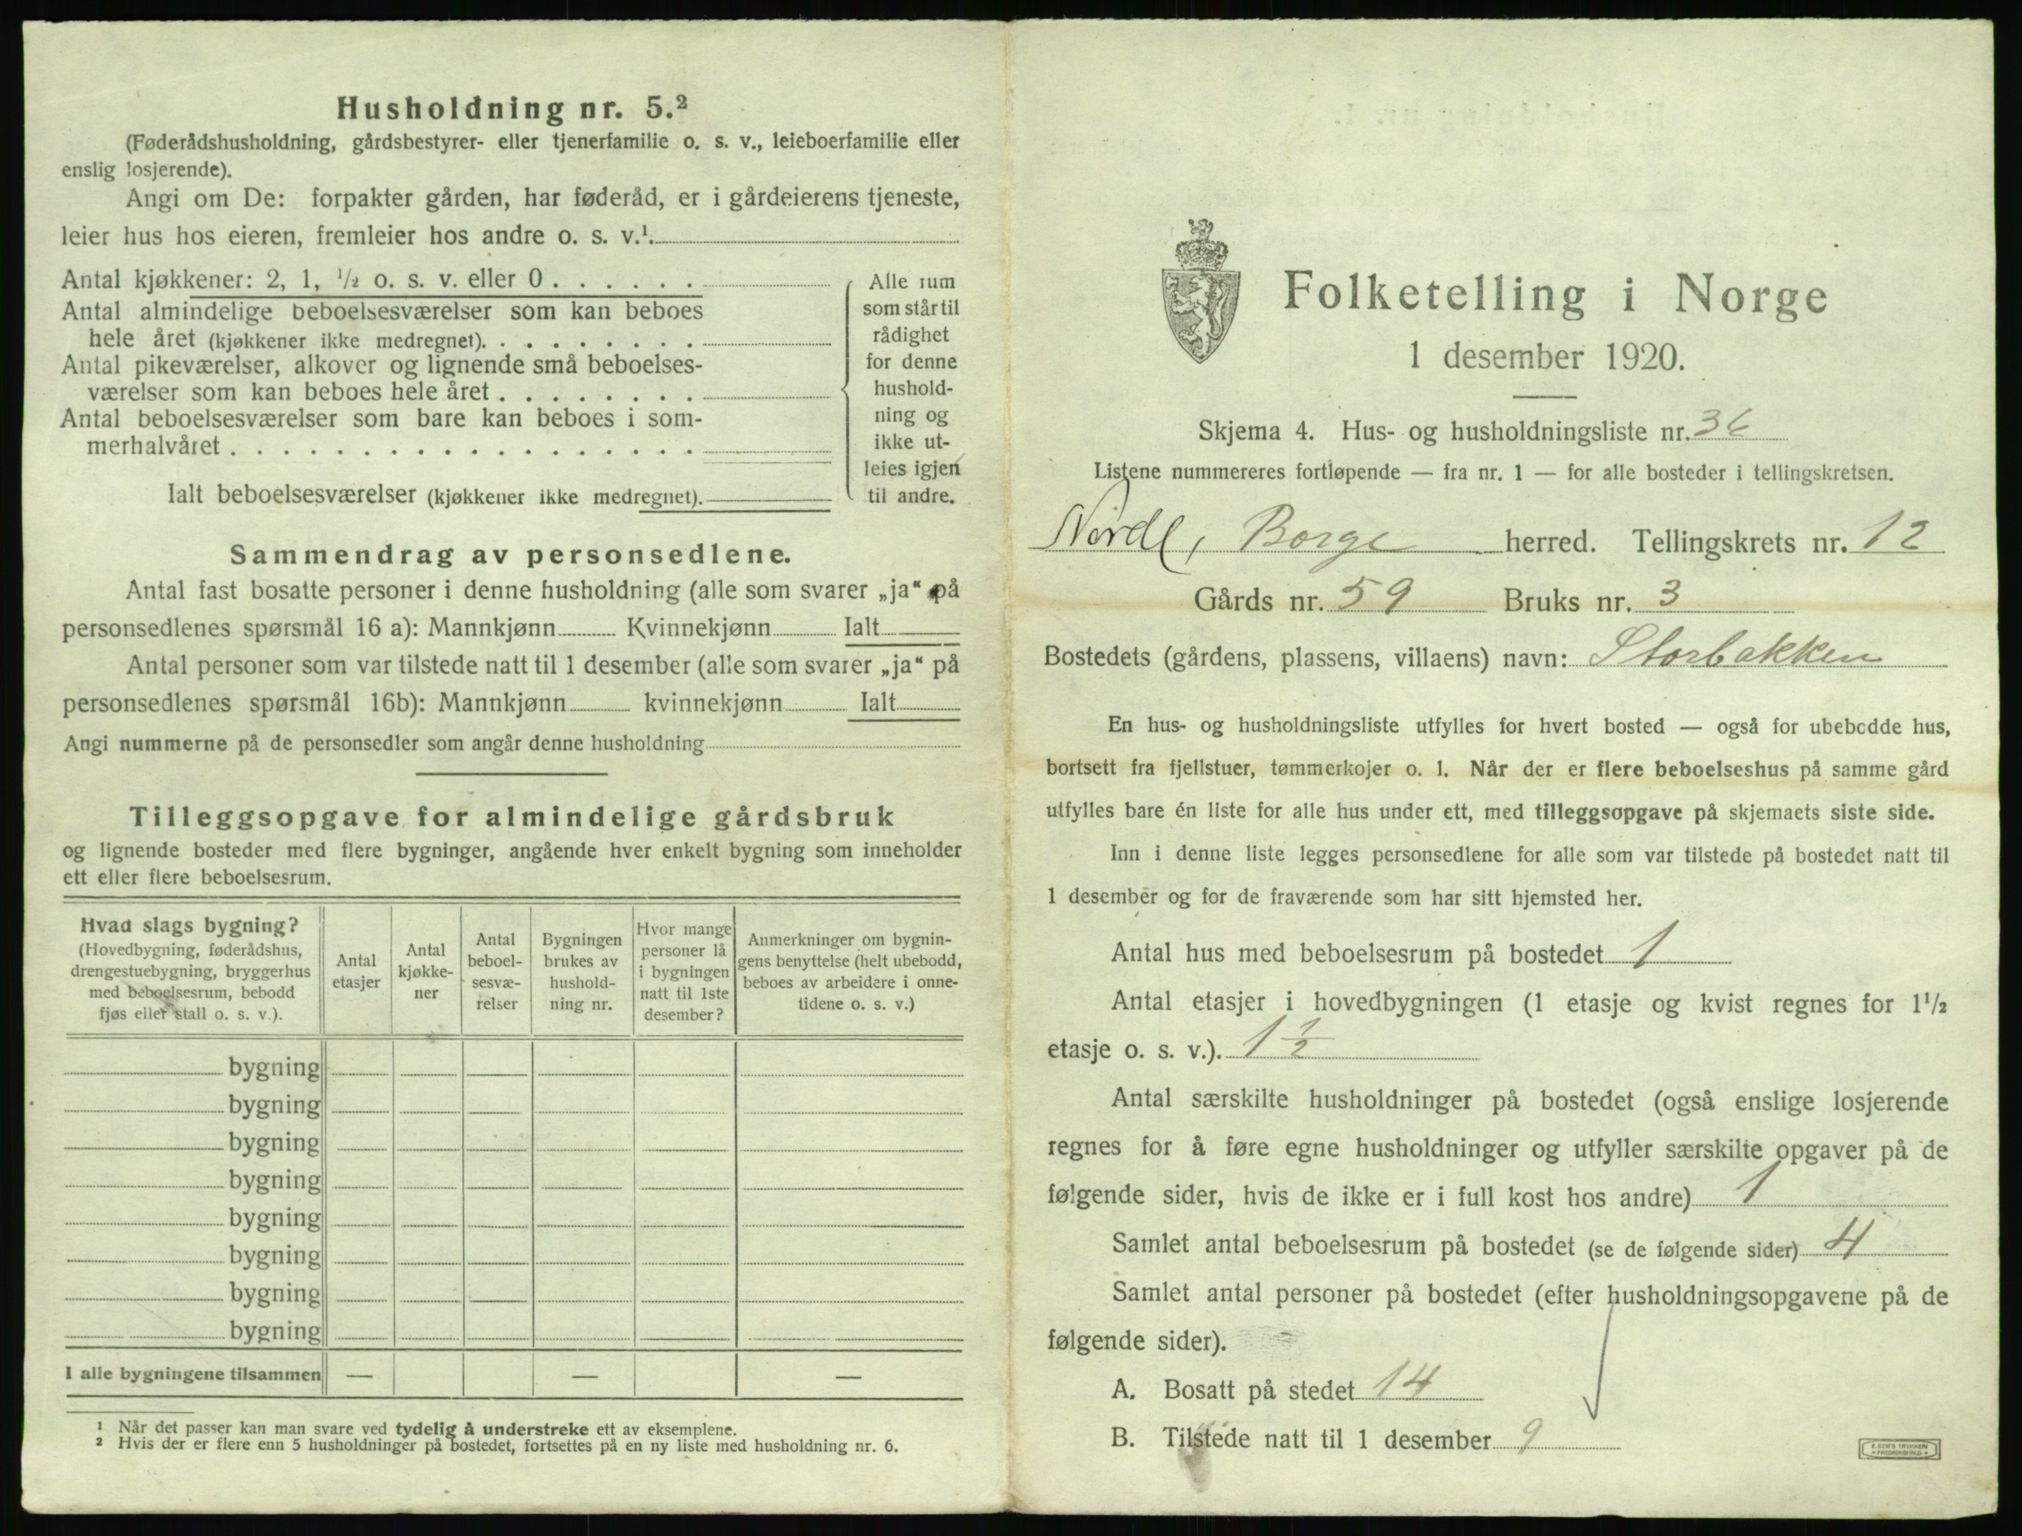 Husholdning nr. 5.²
(Føderådshusholdning, gårdsbestyrer- eller tjenerfamilie o. s. v., leieboerfamilie eller
enslig losjerende).
Angi om De: forpakter gården, har føderåd, er i gårdeierens tjeneste,
leier hus hos eieren, fremleier hos andre o. s. v.¹
Antal kjøkkener: 2, 1, ½ o. s. v. eller 0
Antal almindelige beboelsesværelser som kan beboes
hele året (kjøkkener ikke medregnet)
Antal pikeværelser, alkover og lignende små beboelses-
værelser som kan beboes hele året
Antal beboelsesværelser som bare kan beboes i som-
merhalvåret
Ialt beboelsesværelser (kjøkkener ikke medregnet).
Alle rum
som står til
rådighet
for denne
hushold-
ning og
ikke ut-
leies igjen
til andre.
Sammendrag av personsedlene.
Antal fast bosatte personer i denne husholdning (alle som svarer „ja“ på
personsedlenes spørsmål 16 a): Mannkjønn Kvinnekjønn Ialt
Antal personer som var tilstede natt til 1 desember (alle som svarer „ja“ på
personsedlenes spørsmål 16b): Mannkjønn kvinnekjønn Ialt
Angi nummerne på de personsedler som angår denne husholdning
Tilleggsopgave for almindelige gårdsbruk
og lignende bosteder med flere bygninger, angående hver enkelt bygning som inneholder
ett eller flere beboelsesrum.
Hvad slags bygning?
(Hovedbygning, føderådshus,
drengestuebygning, bryggerhus
med beboelsesrum, bebodd
fjøs eller stall o. s. v.).
Antal
etasjer
Antal
kjøkke-
ner
Antal
beboel-
sesvæ-
relser
Bygningen
brukes av
hushold-
ning nr.
Hvor mange
personer lå
i bygningen
natt til 1ste
desember?
Anmerkninger om bygnin-
gens benyttelse (helt ubebodd,
beboes av arbeidere i onne-
tidene o. s. v.)
bygning
bygning
bygning
bygning
bygning
bygning
bygning
bygning
I alle bygningene tilsammen — — —
¹ Når det passer kan man svare ved tydelig å understreke ett av eksemplene.
² Hvis der er flere enn 5 husholdninger på bostedet, fortsettes på en ny liste med husholdning nr. 6.
Folketelling i Norge
1 desember 1920.
Skjema 4. Hus- og husholdningsliste nr. 36
Listene nummereres fortløpende — fra nr. 1 — for alle bosteder i tellingskretsen.
Nordl, Borge herred. Tellingskrets nr. 12
Gårds nr. 59 Bruks nr. 3
Bostedets (gårdens, plassens, villaens) navn: Storbakken
En hus- og husholdningsliste utfylles for hvert bosted — også for ubebodde hus,
bortsett fra fjellstuer, tømmerkojer o. l. Når der er flere beboelseshus på samme gård
utfylles bare én liste for alle hus under ett, med tilleggsopgave på skjemaets siste side.
Inn i denne liste legges personsedlene for alle som var tilstede på bostedet natt til
1 desember og for de fraværende som har sitt hjemsted her.
Antal hus med beboelsesrum på bostedet 1
Antal etasjer i hovedbygningen (1 etasje og kvist regnes for 1½
etasje o. s. v.). 1 ½
Antal særskilte husholdninger på bostedet (også enslige losjerende
regnes for å føre egne husholdninger og utfyller særskilte opgaver på de
følgende sider, hvis de ikke er i full kost hos andre) 1
Samlet antal beboelsesrum på bostedet (se de følgende sider) 4
Samlet antal personer på bostedet (efter husholdningsopgavene på de
følgende sider).
A. Bosatt på stedet 14
B. Tilstede natt til 1 desember 9